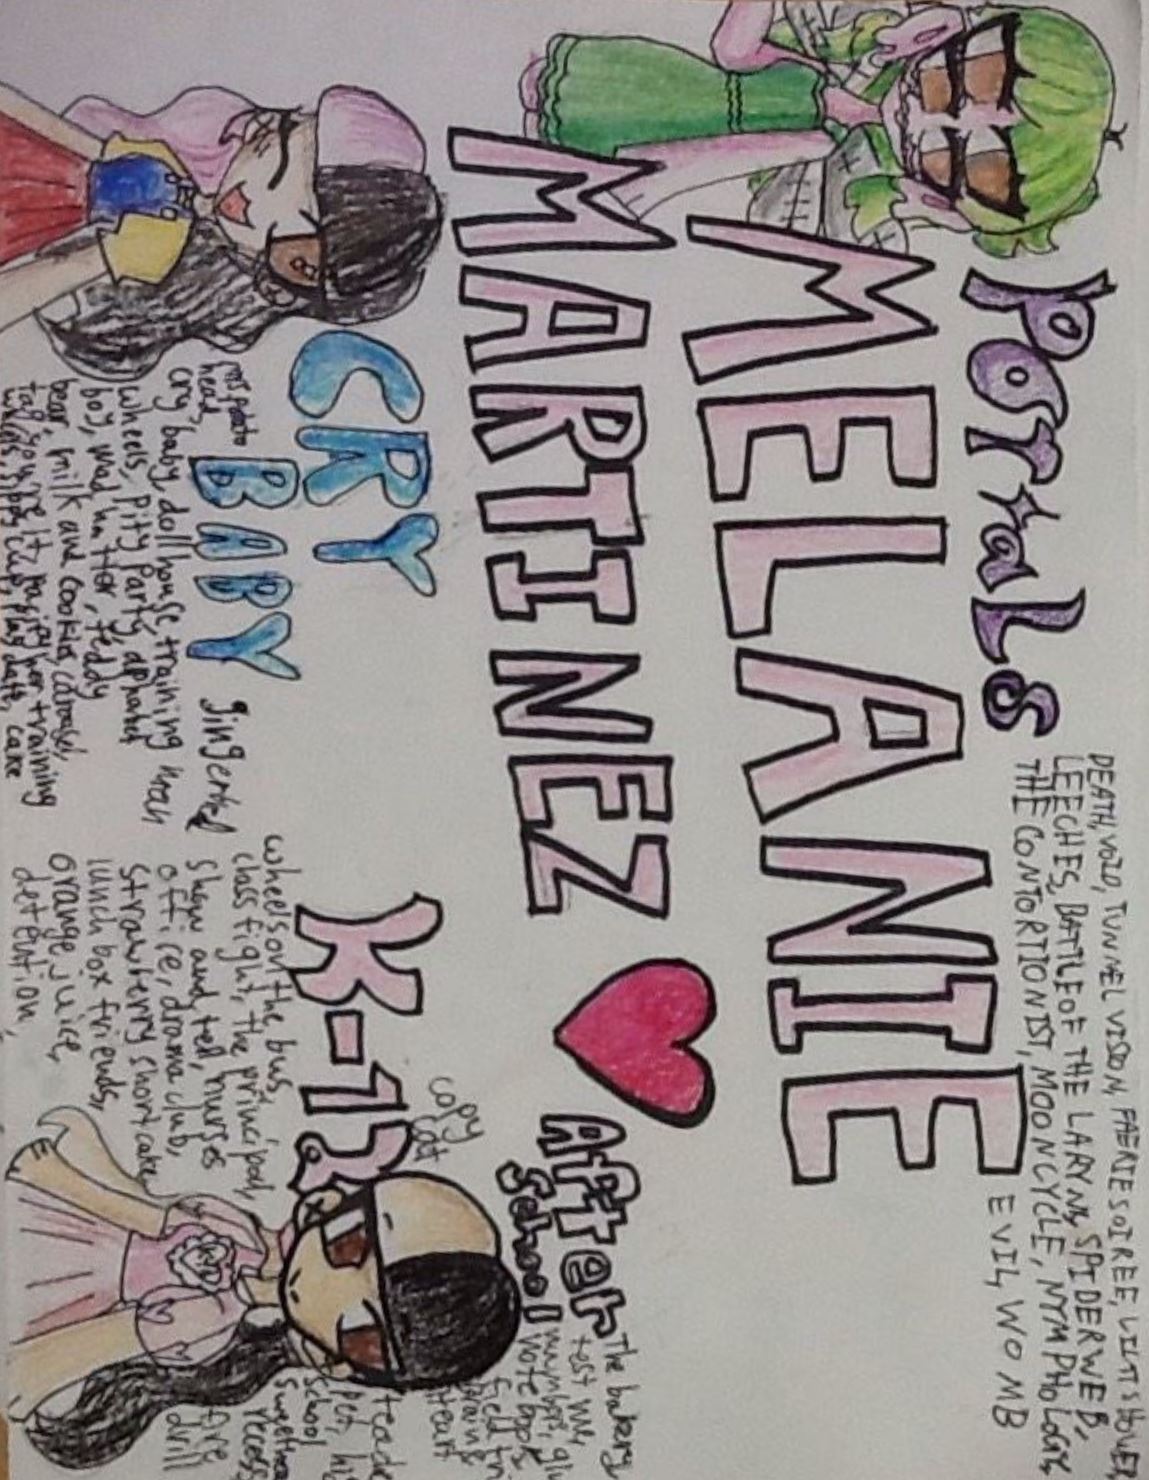 PORTaLS
DEATH, VOID, TUNNEL VISION, FAERIE SOIREE, LIGHT SHOWER
LEECHES, BATTLE OF THE LARYNX, SPIDERWEB,
THE CONTORTIONIST, MOONCYCLE, NYMPHOLOGY,
EVIL, WOMB
MELANIE
MARTINEZ
After
School
The bakery
test me,
number, glu
note book,
field tri
brain
heart
copy
cat
CRY
BABY
mrs potato
head,
gingerbread
cry baby, dollhouse, training man
wheels, Pity Party, alphabet
boy, mad hatter, teddy
bear, milk and cookies, carousel,
tag you're it, pacify her, training
wheels, sippy cup, play date, cake
K-12
wheels on the bus,
class fight, the principal,
show and tell, nurses
office, drama club,
strawberry shortcake
lunch box friends,
orange juice,
detention,
teache
pet, hi
school
sweethea
recess
fire
drill
K-12